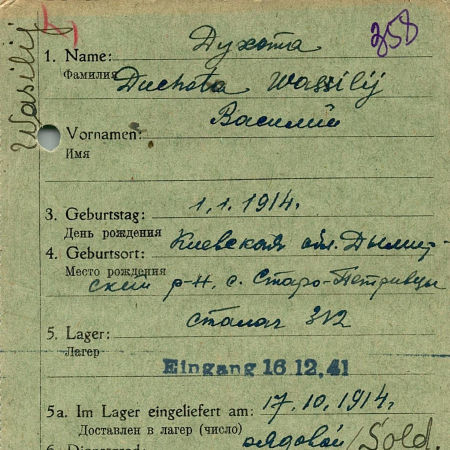 358
Wasilij
Духота
1. Name:
Фамилия
Duchota Wassilij
Василий
Vornamen:
Имя
3. Geburtstag: 1.1.1914.
День рождения
4. Geburtsort: Киевская обл. Дымир-
Место рождения
ский р-н. с. Старо-Петривцы
5. Lager: сталаг 312
Лагер
Eingang 16.12.41
5a. Im Lager eingeliefert am: 17.10.1914.
Доставлен в лагер (число)
рядовой / Sold.